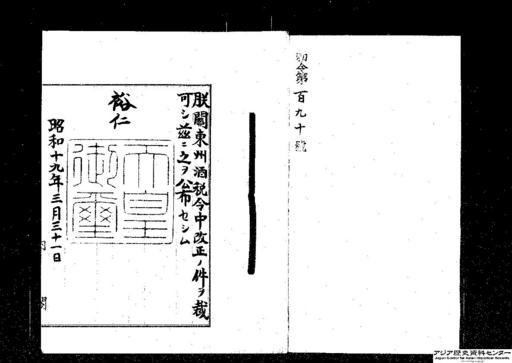 勅令第百九十號
朕關東州酒税令中改正ノ件ヲ裁
可シ茲ニ之ヲ公布セシム
裕仁
天皇
御璽
昭和十九年三月三十一日
内閣
アジア歴史資料センター
Japan Center for Asian Historical Records